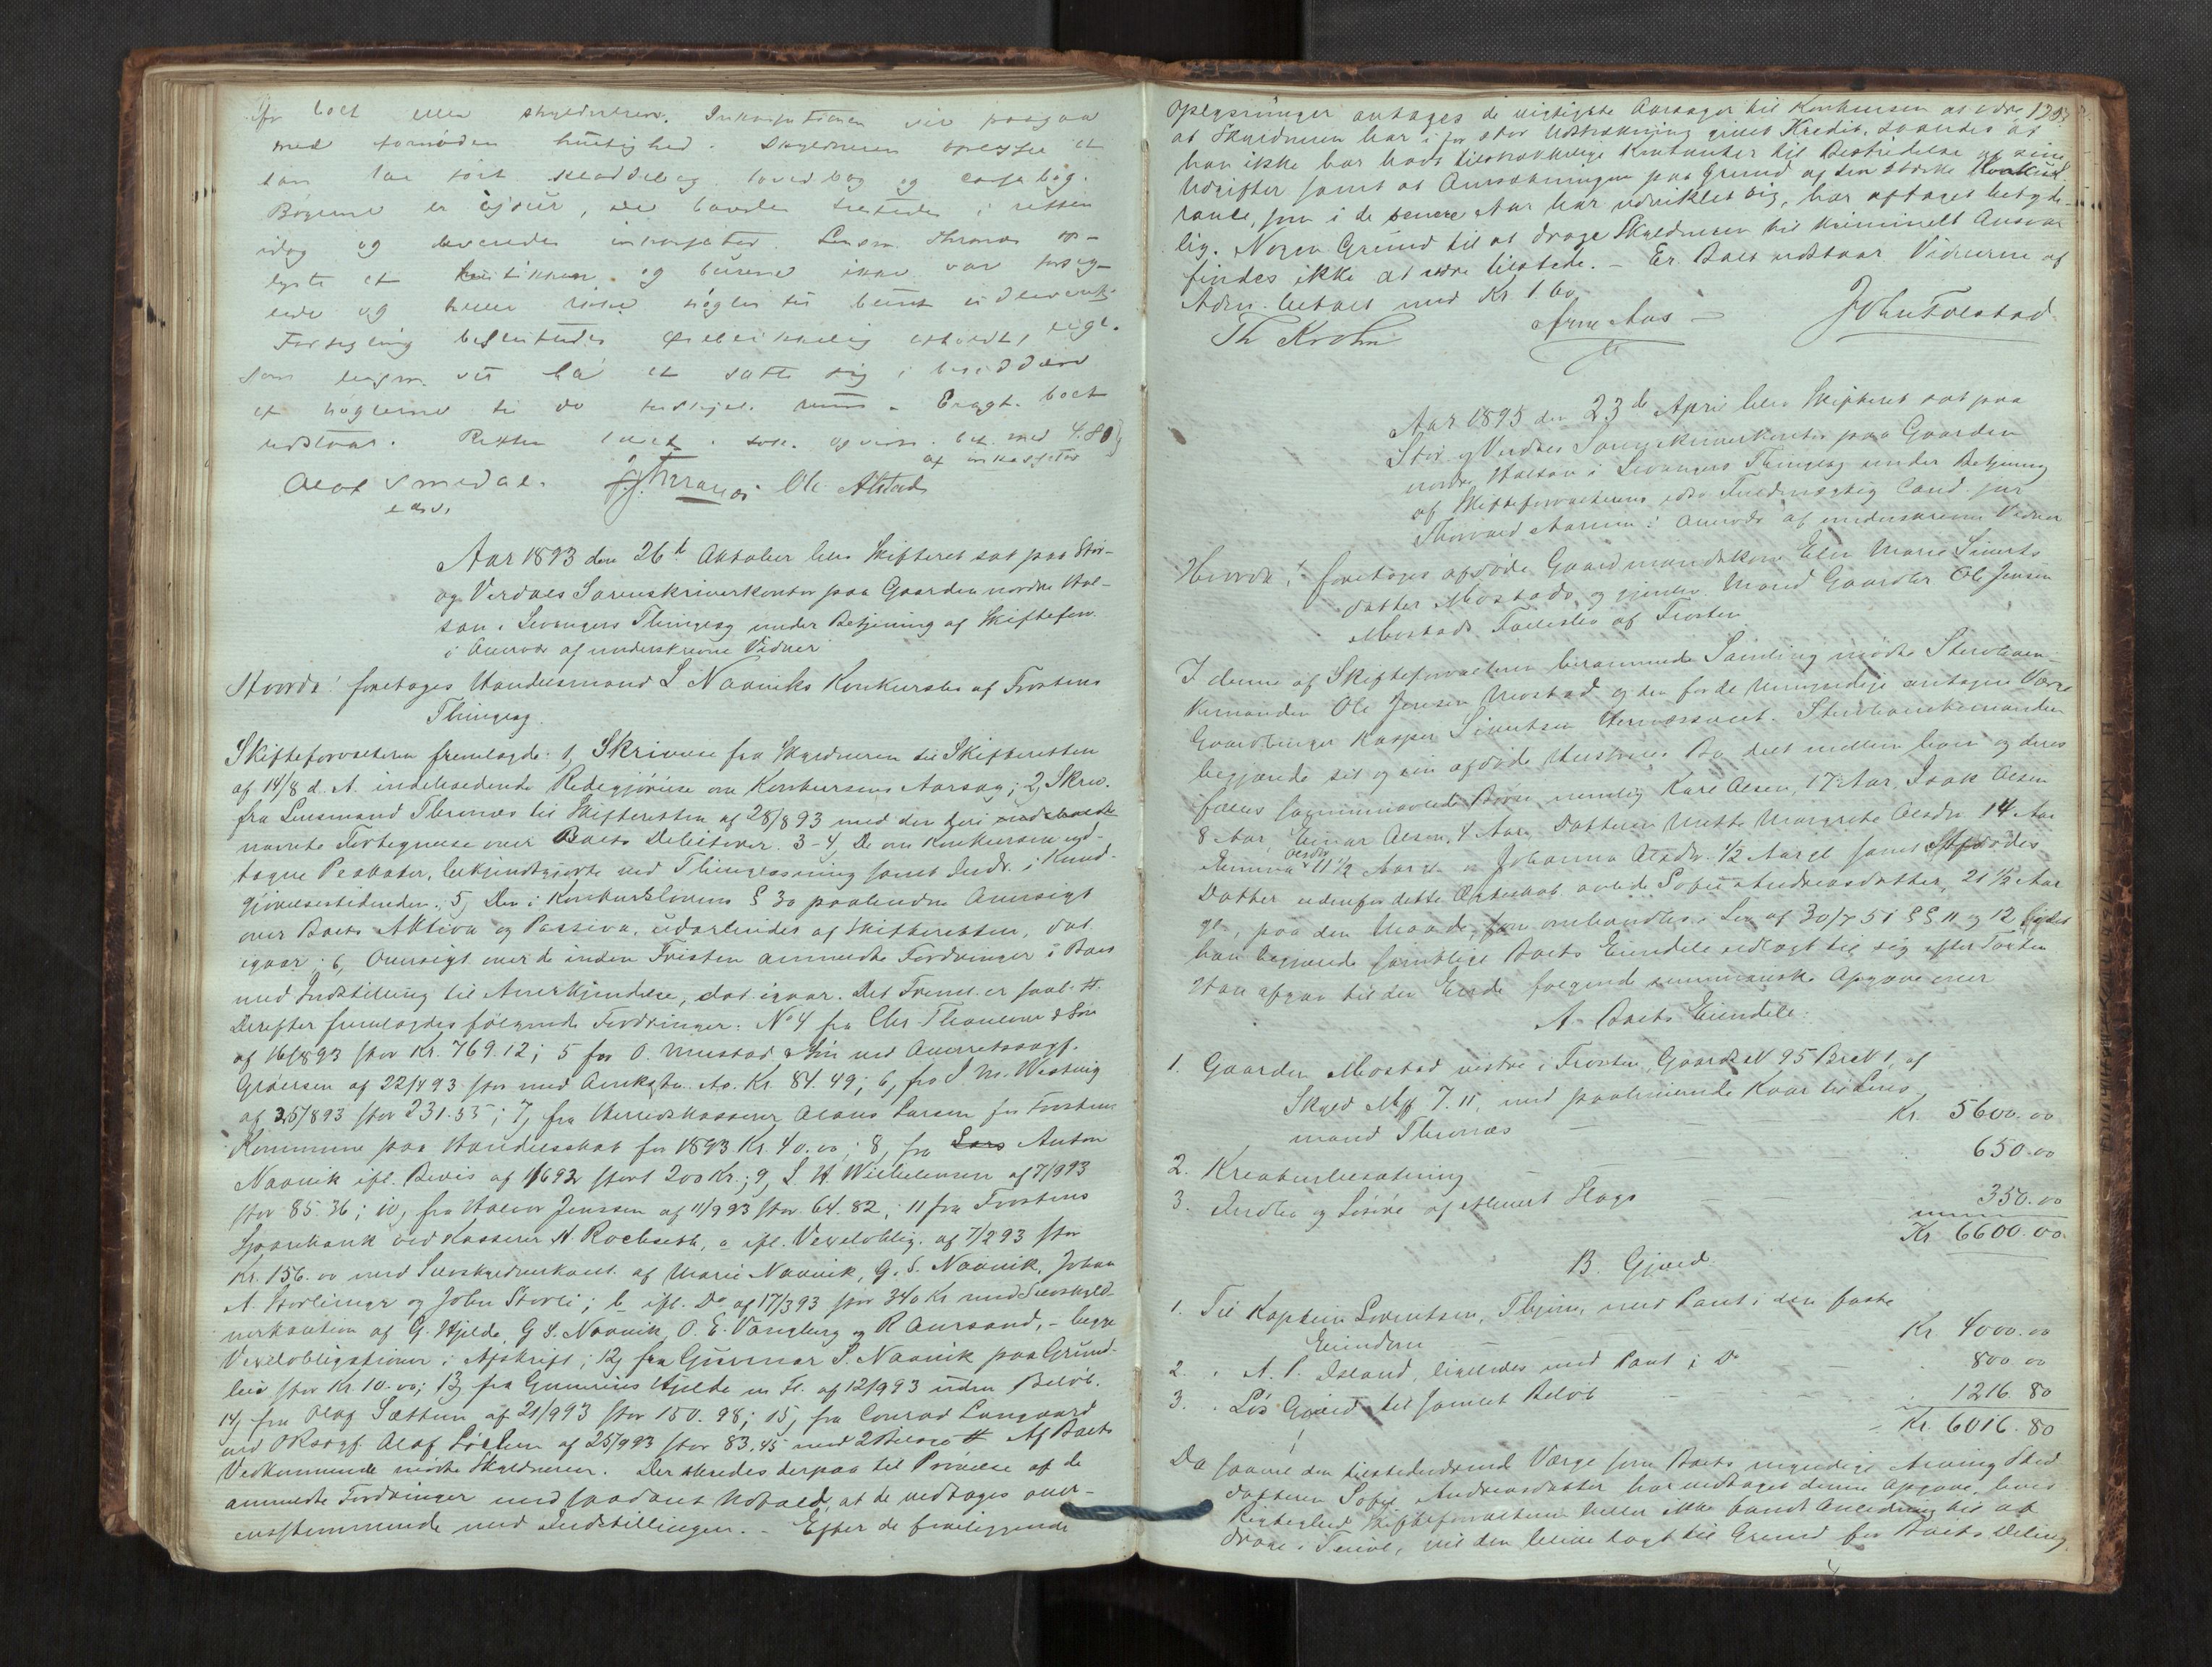 med fornøden hurtighed. Skyldneren oplyste at
han har ført kladdebog, hovedbog og cassabog.
Bøgerne er ajour, de havdes tilstede i retten
idag og leveredes inkassator. Lensm. Thronæs op-
lyste at butikken og buerne ikke var forseg-
lede og heller ikke nøgler til
Forsegling besluttedes
som lensm.
af nøglerne til
udstaar. Retten hævet. bet. med 4.80
af inkassator
Olaf Smedal. Thronæs Ole Alstad
edsv.
Aar 1893 den 26de Oktober blev Skifteret sat paa Stør-
og Verdals Sorenskriverkontor paa Gaarden nordre Hal-
san i Levangers Thinglag under Betjening af Skiftefor.
i Overvær af underskrevne Vidner
Hvorda! foretoges Handelsmand L Naaviks Konkursbo af Frostens
Thinglag.
Skifteforvalteren fremlagde: 1, Skrivelse fra Skyldneren til Skifteretten
af 14/8 d. A. indeholdende Redegjørelse om Konkursens Aarsag; 2, Skriv.
fra Lensmand Thronæs til Skifteretten af 28/8 93 med den deri
nævnte Fortegnelse over Boets Debitorer. 3-4, De om Konkursen ud-
tagne Plakater, bekjendtgjorte ved Thinglæsning samt Indr. i Kund-
gjørelsestidenden. 5, Den i Konkurslovens § 30 paabudne Oversigt
over Boets Aktiva og Passiva, udarbeidet af Skifteretten, dat.
igaar; 6, Oversigt over de inden Fristen anmeldte Fordringer i Boet
med Indstilling til Anerkjendelse, dat. igaar. Det Freml. er saal. #.
Derefter fremlagdes følgende Fordringer: No 4 fra Chr Thaulow & Søn
af 16/8 93 stor Kr. 769.12; 5 fra O. Mustad & Søn ved Overretssagf.
Grøersen af 22/9 93 stor med Omkostn. Kr. 84.49; 6, fra J. M. Westvig
af 25/8 93 stor 231.55; 7, fra Herredskasserer Olaus Larsen for Frostens
Kommune paa Handelsskat for 1893 Kr. 40.00; 8, fra Lars Anton
Naavik ifl. Bevis af stort 200 Kr.; 9, L. H. Wilhelmsen af 7/9 93
stor 85.36; 10, fra Halvor Jenssen af 11/9 93 stor 64.82; 11 fra Frostens
Sparebank ved Kasserer A Rochseth, a ifl. Vexeloblig. af 7/2 93 stor
Kr. 156.00 med Selvskyldnerkaut. af Marie Naavik, G. S. Naavik, Johan
A. Storlimyr og John Storli; b ifl. Do af 17/3 93 stor 340 Kr med Selvskyld-
nerkaution af G. Hjelde, G S. Naavik, O. E. Vangberg og R Aursand, - begge
Vexelobligationer i Afskrift; 12, fra Gunnar S. Naavik paa Grund-
leie stor Kr 10.00; 13, fra Gunerius Hjelde m Fl. af 12/9 93 uden Beløb.
14, fra Olaf Sættem af 21/9 93 stor 150.98; 15, fra Conrad Langaard
ved ORsagf. Olaf Løchen af 25/9 93 stor 83.45 med 2 Bilage #. Af Boets
Vedkommende mødte Skyldneren. Der skredes derpaa til Prøvelse af de
anmeldte Fordringer med saadant Udfald, at de vedtoges over-
ensstemmende med Indstillingen. - Efter de foreliggende
Oplysninger antages de vigtigste Aarsager til Konkursen at være
at Skyldneren har i for stor Udstrækning givet Kredit, saaledes at
han ikke har havt tilstrækkelige Kontanter til Bestridelse af sine
Udgifter samt at Omsætningen paa Grund af den stærke Konkur-
rance, som i de senere Aar har udviklet sig, har aftaget betyde-
lig. Nogen Grund til at drage Skyldneren til kriminelt Ansvar
findes ikke at være tilstede. - Er. Boet udstaar. Vidnerne af
Adm. betalt med Kr. 1.60
Th Krohn Arne Aas John Folstad
Aar 1895 den 23de April blev Skifteret sat paa
Stør- og Verdals Sorenskriverkontor paa Gaarden
nordre Halsan i Levangers Thinglag under Betjening
af Skifteforvalterens edsv. Fuldmægtig Cand. jur
Thorvald Aarum i Overvær af underskrevne Vidner
Hvorda! foretoges afdøde Gaardmandskone Elen Marie Siverts
datter Mostads og gjenlev. Mand Gaardbr Ole Jensen
Mostads Fællesbo af Frosten
I denne af Skifteforvalteren berammede Samling mødte Stervboen-
kemanden Ole Jensen Mostad og den for de Umyndige antagne Værge
Gaardbruger Kasper Sivertsen Hernæssvedt. Stervboenkemanden
begjærede sit og sin afdøde Hustrues Bo delt mellem ham og deres
fælles sammenavlede Børn nemlig Karl Olsen, 17 Aar, Isak Olsen
8 Aar, Einar Olsen, 4 Aar, Datteren Mette Margrete Olsdtr 14 Aar
Emma Olsdtr 11½ Aar gl. og Johanna Olsdtr. ½ Aar gl samt Afdødes
Datter udenfor dette Ægteskab avlede Sofie Andreasdatter, 21½ Aar
gl., paa den Maade, som omhandles i Lov af 30/7 51 §§ 11 og 12 ligesom
han begjærede samtlige Boets Eiendele udlagt til sig efter Taxten
Han afgav til den Ende følgende summariske Opgave over
A. Boets Eiendele:
1. Gaarden Mostad vestre i Frosten, Gaards N 95 Br. N 1, af
Skyld Mk 7.11, med paahvilende Kaar til Lens
mand Thronæs - Kr. 5600.00
2. Kreaturbesætning - 650.00
3. Indbo og Løsøre af Allverst Slags - 350.00
Kr. 6600.00
B. Gjæld
1. Til Kaptein Lorentsen, Thjem, med Pant i den faste
Eiendom - Kr 4000.00
2. " A. P. Island, ligeledes med Pant i Do - 800.00
3. " Løs Gjæld til samlet Beløb - " 1216.80
- Kr. 6016.80
Da saavel den tilstedeværende Værge som Boets myndige Arving Sted
datteren Sofie Andreasdatter har vedtaget denne Opgave, hvis
Rigtighed Skifteforvalteren heller ikke fandt Anledning til at
drage i Tvivl, vil den blive lagt til Grund for Boets Deling